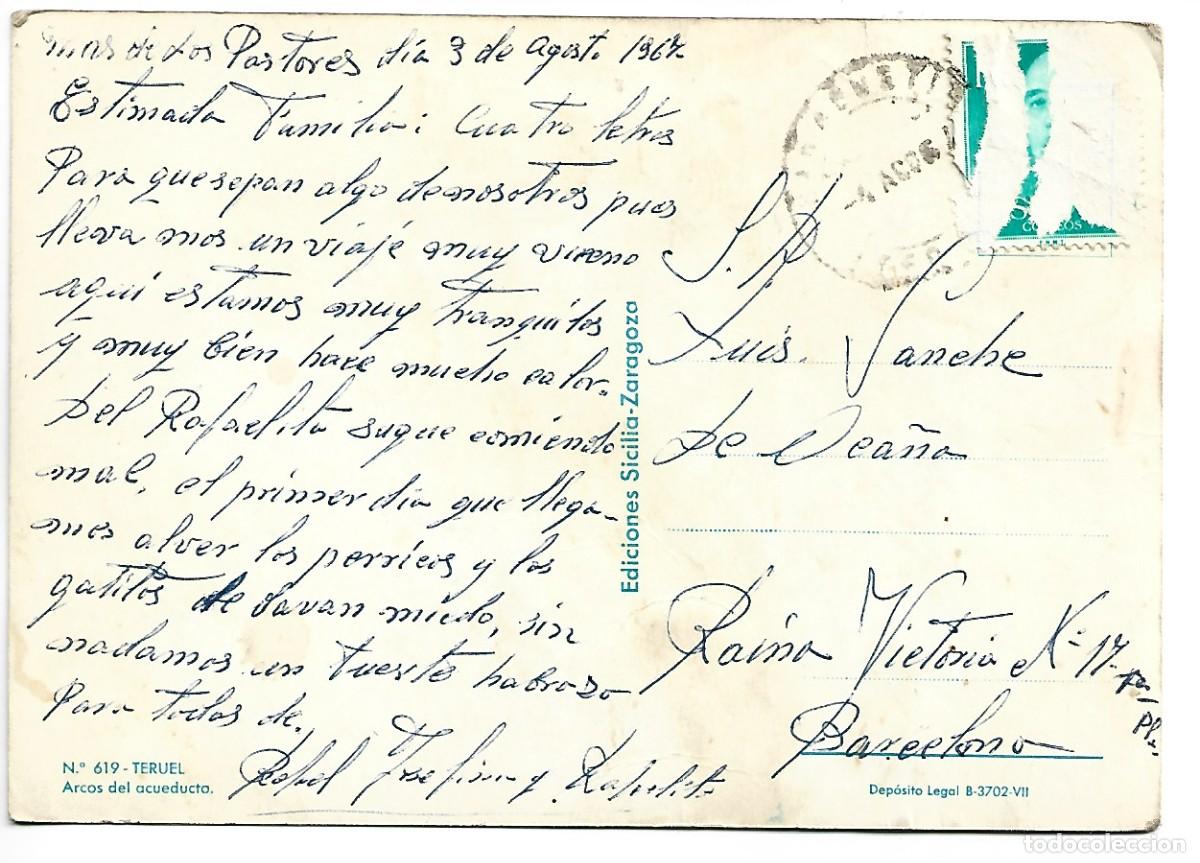 mas de Los Pastores día 3 de Agosto 1967
Estimada Familia: Cuatro letras
Para que sepan algo de nosotros pues
lleva mos un viaje muy vueno
aquí estamos muy tranquilos
y muy bien hace mucho calor.
Del Rafaelito sugue comiendo
mal, el primer día que llega-
mos alver los perricos y los
gatitos le davan miedo, sin
nadamos un fuerte habrazo
Para todos de.
Rafael Josefina y Rafaelito
N.º 619 - TERUEL
Arcos del acueducto.
Ediciones Sicilia-Zaragoza
CORREOS
S. R
Luis. Sanche
De Ocaña
Raina Victoria Nº 17
Barcelona
Depósito Legal B-3702-VII
todocoleccion